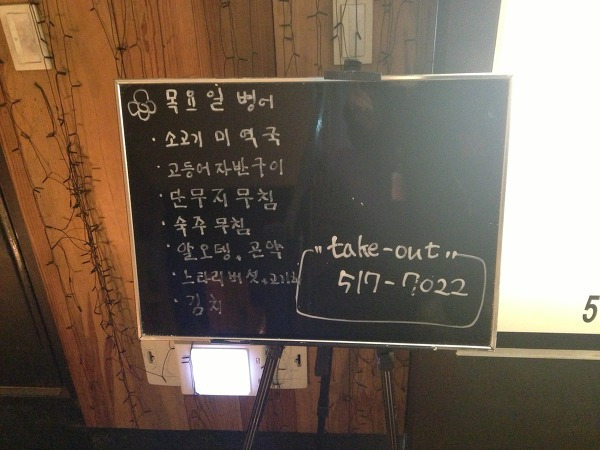 목요일 병어
· 소고기 미역국
· 고등어자반구이
· 단무지무침
· 숙주무침
· 알오뎅, 곤약
· 느타리버섯, 고기
· 김치
"take-out"
517-7022
5